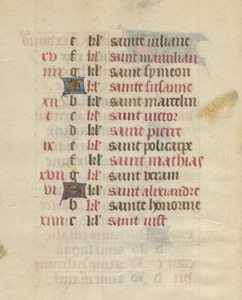 e kl' sainte iuliane
xv f kl' saint maximilian
iiii g kl' saint symeon
A kl' sainte susanne
xii b kl' saint marcelin
i c kl' saint victor
d kl' saint pierre
ix e kl' saint policarpe
f kl' saint mathias
xvii g kl' saint
vi A kl' saint alixandre
b kl' sainte honorine
xiiii c kl' saint iust